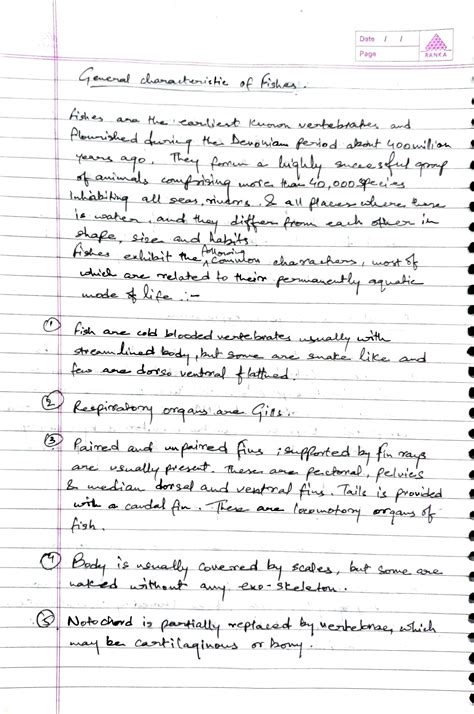 Date / /
Page
RANKA
General characteristic of Fishes.
Fishes are the earliest known vertebrates and
flourished during the Devonian period about 400 million
years ago. They form a highly successful group
of animals comprising more than 40,000 species
Inhabiting all seas, rivers & all places where there
is water, and they differ from each other in
shape, size and habits.
fishes exhibit the following common characters, most of
which are related to their permanently aquatic
mode of life :-
① fish are cold blooded vertebrates usually with
streamlined body, but some are snake like and
few are dorso ventral flattned.
② Respiratory organs are Gills.
③ Paired and unpaired fins ; supported by fin rays
are usually present. These are pectoral, pelvics
& median dorsal and ventral fins. Tails is provided
with a caudal fin. These are locomotory organs of
fish.
④ Body is usually covered by scales, but some are
naked without any exo-skeleton.
⑤ Notochord is partially replaced by vertebrae, which
may be cartilaginous or bony.